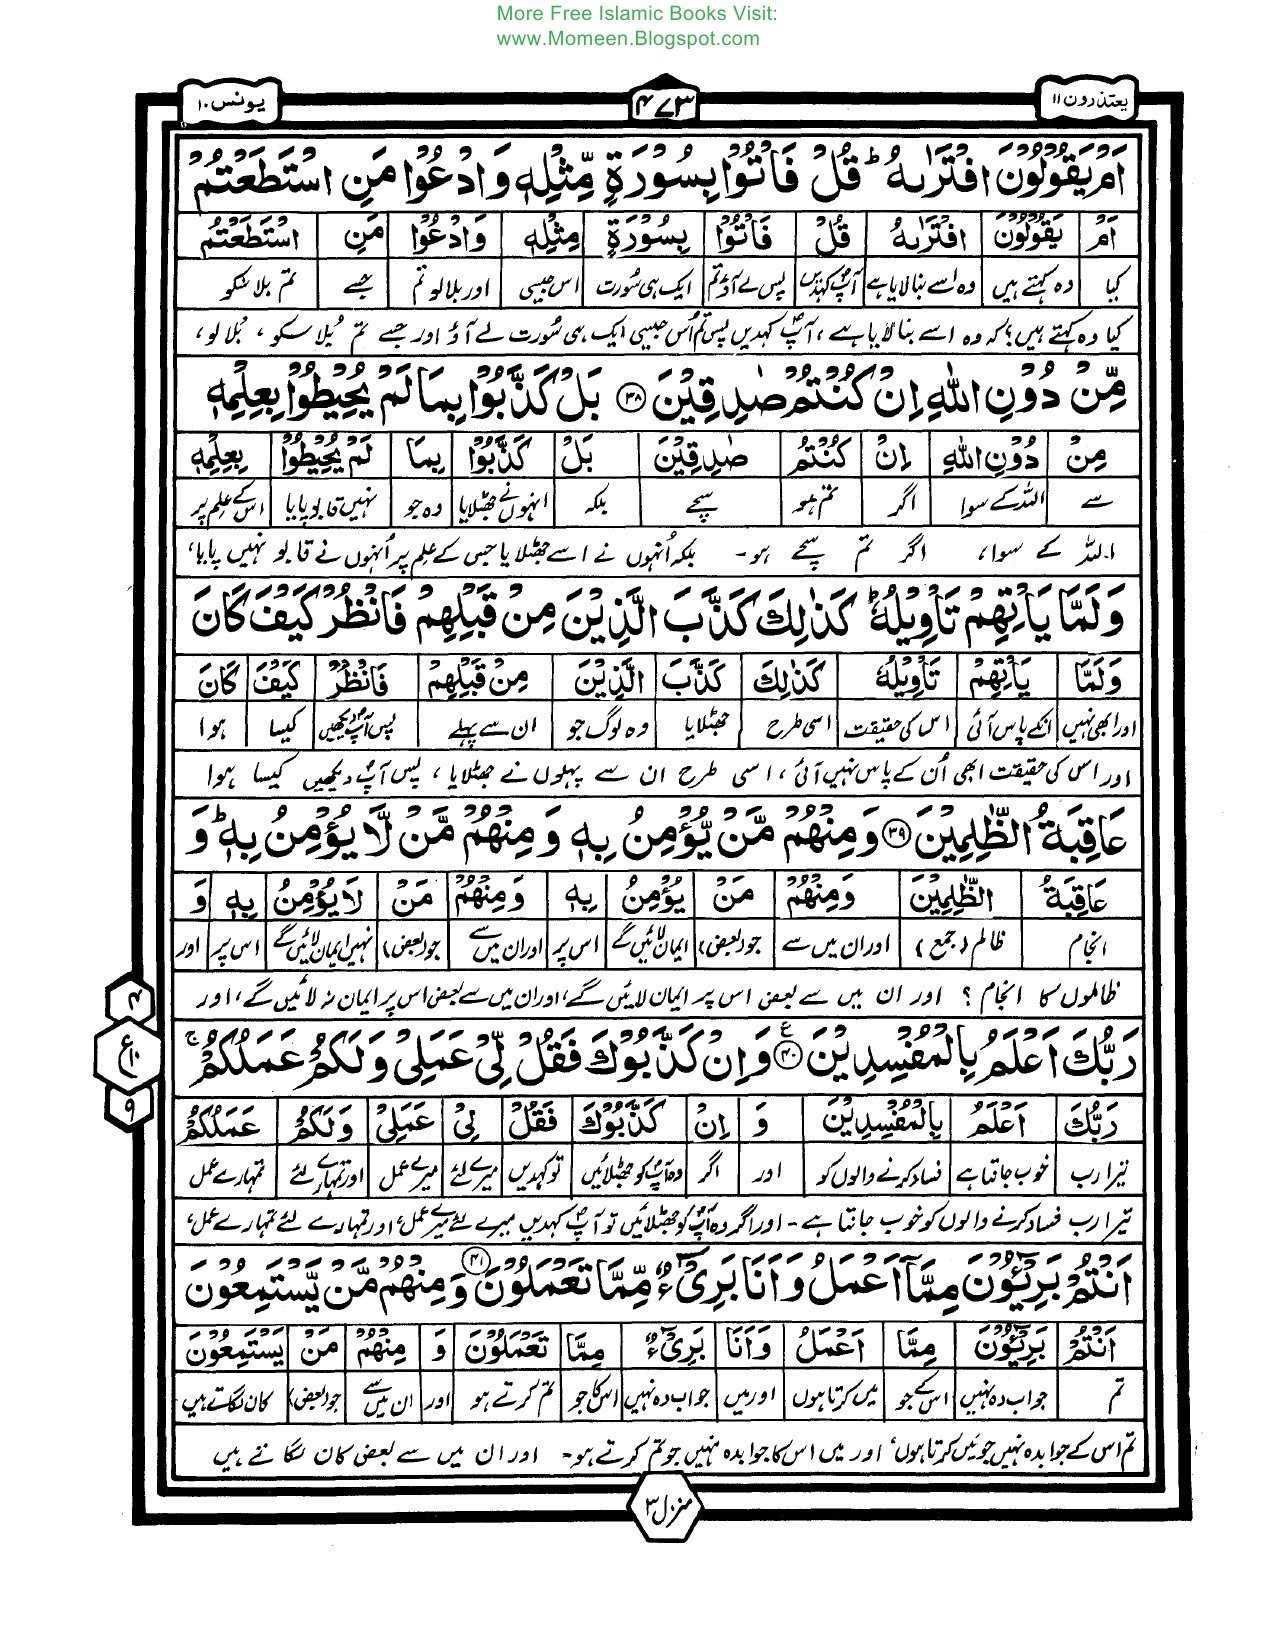 More Free Islamic Books Visit:
www.Momeen.Blogspot.com
یعتذرون ۱۱
۴۷۳
یونس ۱۰
اَمۡ یَقُوۡلُوۡنَ افۡتَرٰىہُ ؕ قُلۡ فَاۡتُوۡا بِسُوۡرَۃٍ مِّثۡلِہٖ وَادۡعُوۡا مَنِ اسۡتَطَعۡتُمۡ
اَمۡ یَقُوۡلُوۡنَ افۡتَرٰىہُ قُلۡ فَاۡتُوۡا بِسُوۡرَۃٍ مِثۡلِہٖ وَادۡعُوۡا مَنِ اسۡتَطَعۡتُمۡ
کیا وہ کہتے ہیں وہ اسے بنا لایا ہے آپؐ کہدیں پس لے آؤ تم ایک ہی سورت اس جیسی اور بلا لو تم جسے تم بلا سکو
کیا وہ کہتے ہیں؟ کہ وہ اسے بنا لایا ہے، آپؐ کہدیں پس تم اُس جیسی ایک ہی سُورت لے آؤ اور جسے تم بُلا سکو، بُلا لو،
مِّنۡ دُوۡنِ اللّٰہِ اِنۡ کُنۡتُمۡ صٰدِقِیۡنَ ﴿۳۸﴾ بَلۡ کَذَّبُوۡا بِمَا لَمۡ یُحِیۡطُوۡا بِعِلۡمِہٖ
مِنۡ دُوۡنِ اللّٰہِ اِنۡ کُنۡتُمۡ صٰدِقِیۡنَ بَلۡ کَذَّبُوۡا بِمَا لَمۡ یُحِیۡطُوۡا بِعِلۡمِہٖ
سے اللہ کے سوا اگر تم ہو سچے بلکہ انہوں نے جھٹلایا وہ جو نہیں قابو پایا اس کے علم پر
اللہ کے سوا، اگر تم سچے ہو۔ بلکہ اُنہوں نے اسے جھٹلایا جس کے علم پر اُنہوں نے قابو نہیں پایا،
وَلَمَّا یَاۡتِہِمۡ تَاۡوِیۡلُہٗ ؕ کَذٰلِکَ کَذَّبَ الَّذِیۡنَ مِنۡ قَبۡلِہِمۡ فَانۡظُرۡ کَیۡفَ کَانَ
وَلَمَّا یَاۡتِہِمۡ تَاۡوِیۡلُہٗ کَذٰلِکَ کَذَّبَ الَّذِیۡنَ مِنۡ قَبۡلِہِمۡ فَانۡظُرۡ کَیۡفَ کَانَ
اور ابھی نہیں انکے پاس آئی اس کی حقیقت اسی طرح جھٹلایا وہ لوگ جو ان سے پہلے پس آپؐ دیکھیں کیسا ہوا
اور اس کی حقیقت ابھی اُن کے پاس نہیں آئی، اسی طرح ان سے پہلوں نے جھٹلایا، پس آپؐ دیکھیں کیسا ہوا
عَاقِبَۃُ الظّٰلِمِیۡنَ ﴿۳۹﴾ وَمِنۡہُمۡ مَّنۡ یُّؤۡمِنُ بِہٖ وَمِنۡہُمۡ مَّنۡ لَّا یُؤۡمِنُ بِہٖ ؕ وَ
عَاقِبَۃُ الظّٰلِمِیۡنَ وَمِنۡہُمۡ مَنۡ یُؤۡمِنُ بِہٖ وَمِنۡہُمۡ مَنۡ لَا یُؤۡمِنُ بِہٖ وَ
انجام ظالم (جمع) اور ان میں سے جو (بعض) ایمان لائیں گے اس پر اور ان میں سے جو (بعض) نہیں ایمان لائیں گے اس پر اور
ظالموں کا انجام؟ اور ان میں سے بعض اس پر ایمان لائیں گے، اور ان میں سے بعض اس پر ایمان نہ لائیں گے، اور
۴
ع ۱۰
۹
رَبُّکَ اَعۡلَمُ بِالۡمُفۡسِدِیۡنَ ﴿۴۰﴾ وَاِنۡ کَذَّبُوۡکَ فَقُلۡ لِّیۡ عَمَلِیۡ وَلَکُمۡ عَمَلُکُمۡ ۚ
رَبُّکَ اَعۡلَمُ بِالۡمُفۡسِدِیۡنَ وَ اِنۡ کَذَّبُوۡکَ فَقُلۡ لِیۡ عَمَلِیۡ وَلَکُمۡ عَمَلُکُمۡ
تیرا رب خوب جانتا ہے فساد کرنے والوں کو اور اگر وہ آپؐ کو جھٹلائیں تو کہدیں میرے لئے میرے عمل اور تمہارے لئے تمہارے عمل
تیرا رب فساد کرنے والوں کو خوب جانتا ہے۔ اور اگر وہ آپؐ کو جھٹلائیں تو آپؐ کہدیں میرے لئے میرے عمل، اور تمہارے لئے تمہارے عمل،
اَنۡتُمۡ بَرِیۡٓـُٔوۡنَ مِمَّاۤ اَعۡمَلُ وَاَنَا بَرِیۡٓءٌ مِّمَّا تَعۡمَلُوۡنَ ﴿۴۱﴾ وَمِنۡہُمۡ مَّنۡ یَّسۡتَمِعُوۡنَ
اَنۡتُمۡ بَرِیۡٓـُٔوۡنَ مِمَّا اَعۡمَلُ وَاَنَا بَرِیۡٓءٌ مِمَّا تَعۡمَلُوۡنَ وَ مِنۡہُمۡ مَنۡ یَسۡتَمِعُوۡنَ
تم جواب دہ نہیں اس کے جو میں کرتا ہوں اور میں جواب دہ نہیں اس کا جو تم کرتے ہو اور ان میں سے جو (بعض) کان لگاتے ہیں
تم اس کے جوابدہ نہیں جو میں کرتا ہوں، اور میں اس کا جوابدہ نہیں جو تم کرتے ہو۔ اور ان میں سے بعض کان لگاتے ہیں
منزل ۳